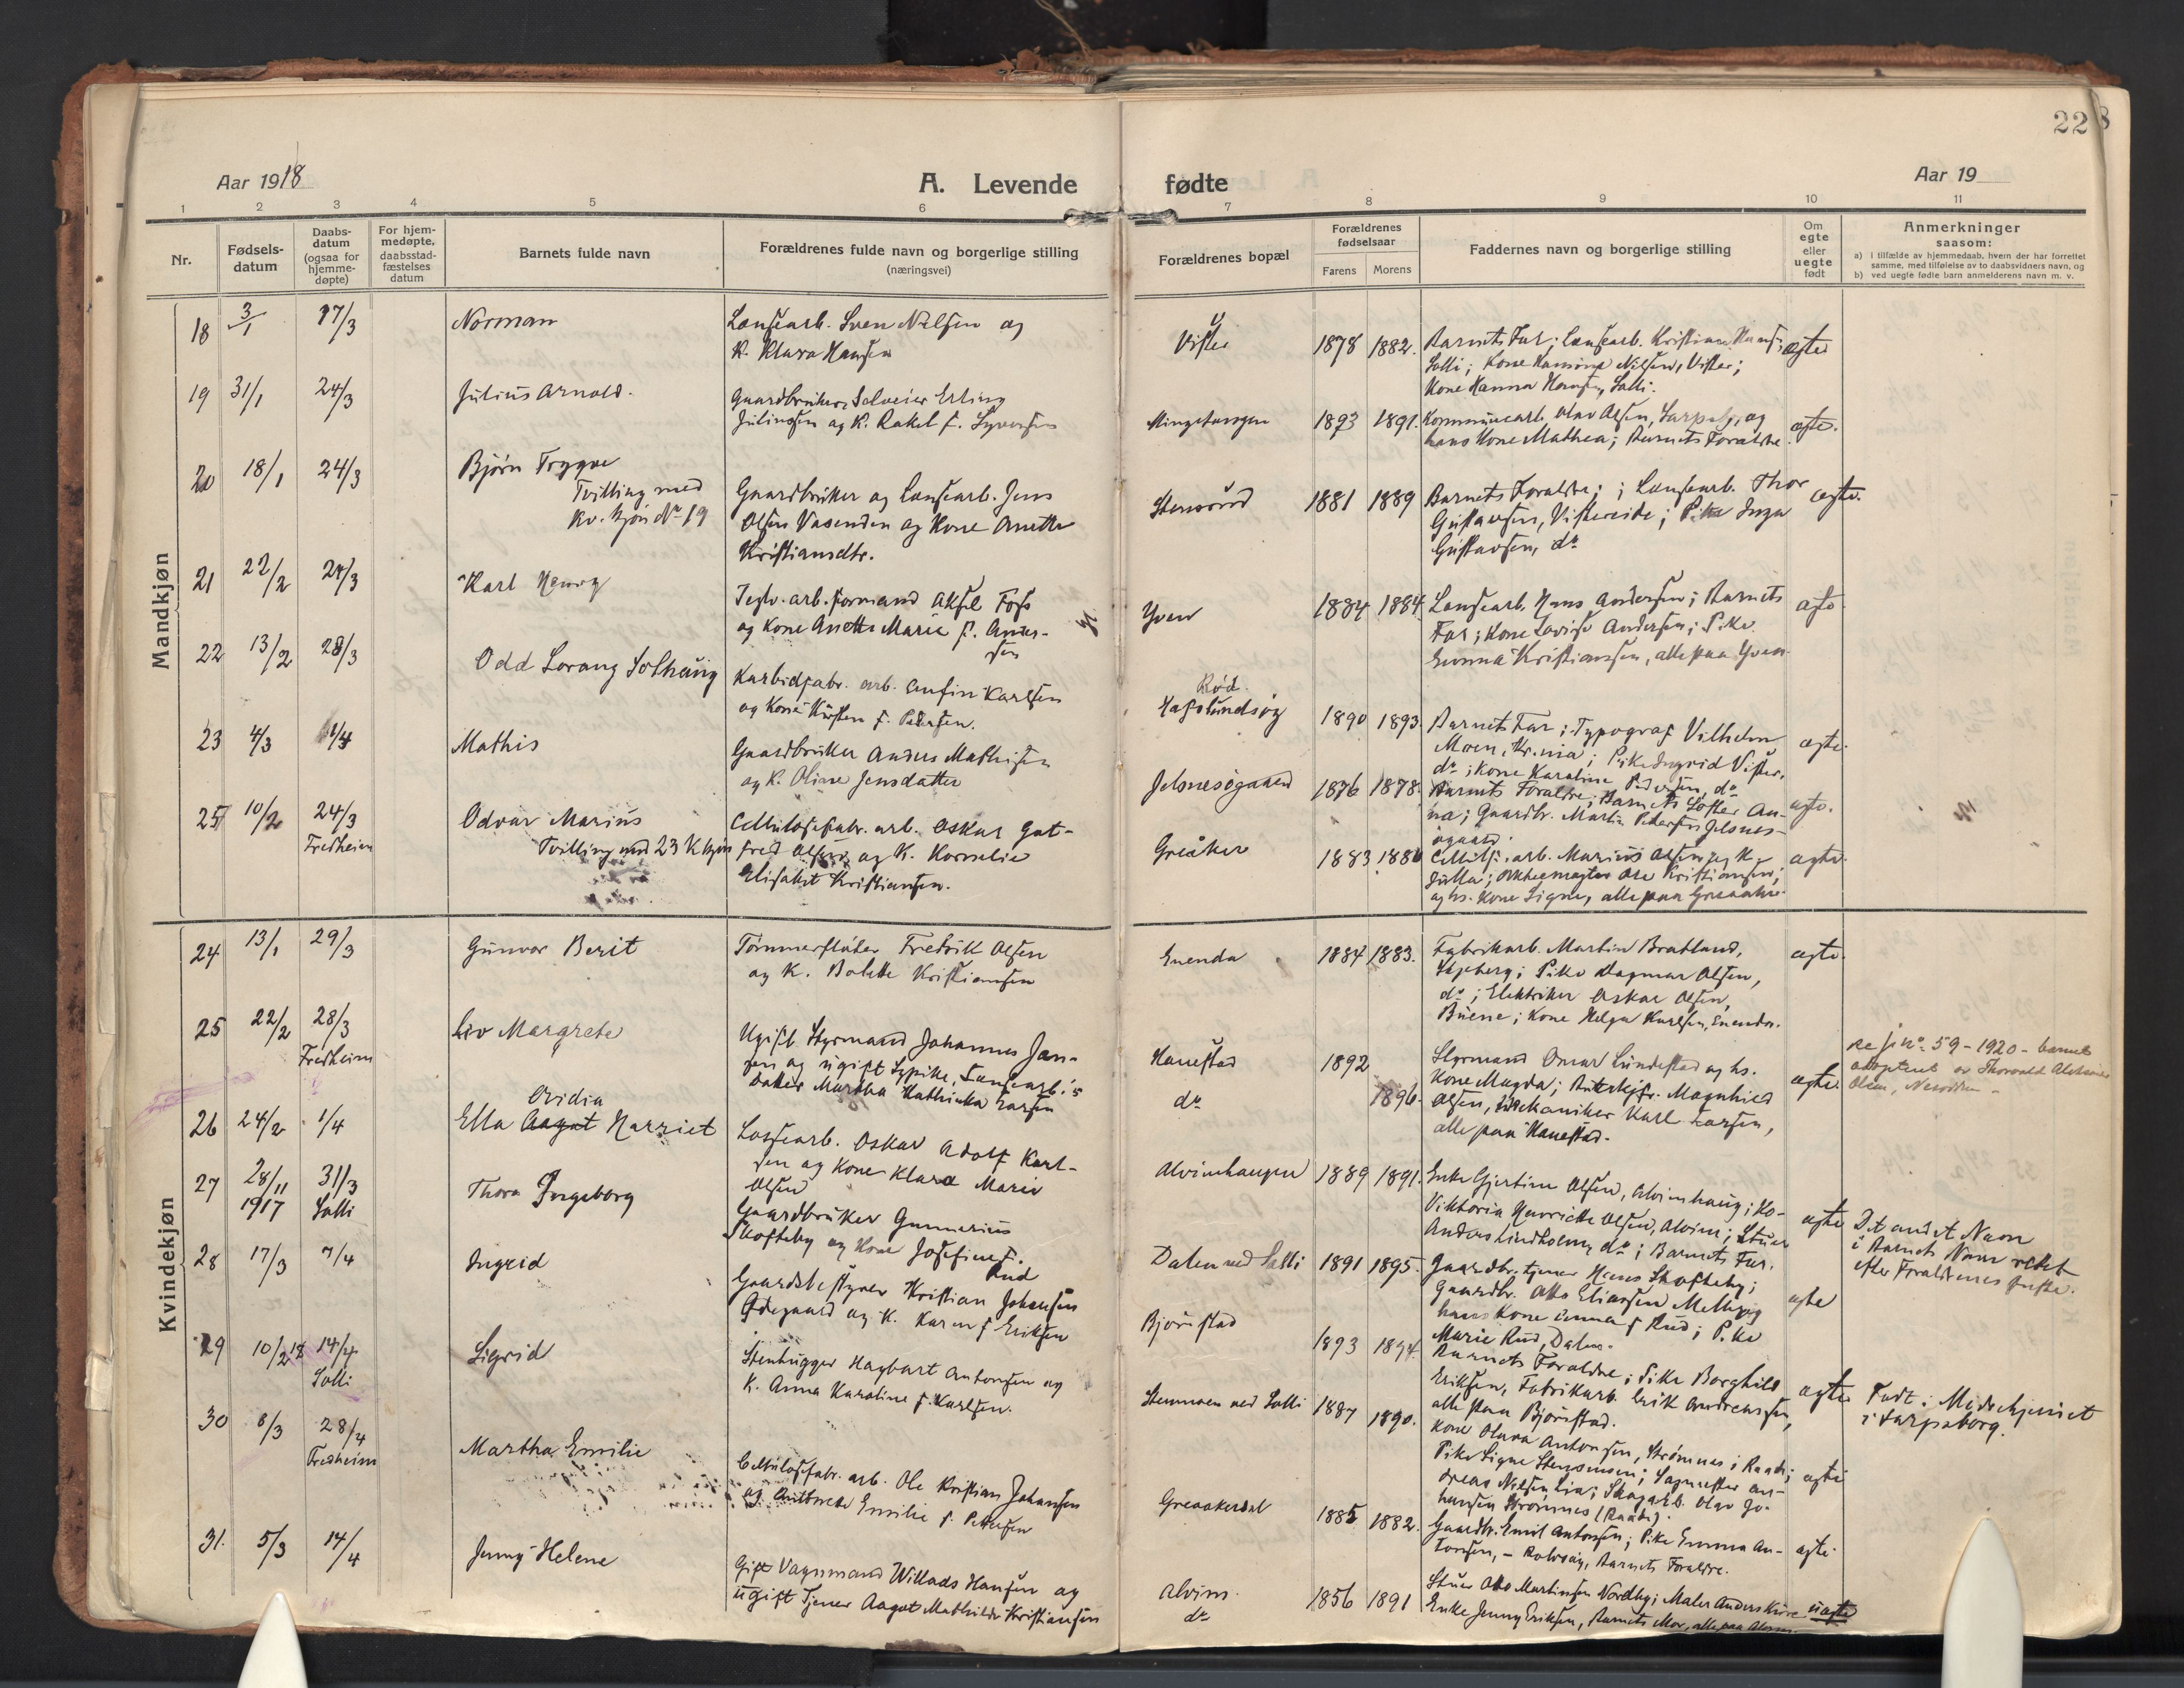 228
Aar 1918
A. Levende fødte
Aar 19
1 2 3 4 5 6 7 8 9 10 11
Nr.
Fødsels-
datum
Daabs-
datum
(ogsaa for
hjemme-
døpte)
For hjem-
medøpte,
daabsstad-
fæstelses
datum
Barnets fulde navn
Forældrenes fulde navn og borgerlige stilling
(næringsvei)
Forældrenes bopæl
Forældrenes
fødselsaar
Farens Morens
Faddernes navn og borgerlige stilling
Om
egte
eller
uegte
født
Anmerkninger
saasom:
a) i tilfælde av hjemmedaab, hvem der har forrettet
samme, med tilføielse av to daabsvidners navn, og
b) ved uegte fødte barn anmelderens navn m. v.
Mandkjøn
18 3/1 17/3 Norman
Lænsearb. Sven Nilsen og
K. Klara Hansen
Vister 1878 1882.
Barnets Far; Lænsearb. Kristian Hans.
Solli; Kone Nilsen, Vister;
Kone Hanna Hansen, Solli.
egte
19 31/1 24/3 Julius Arnold.
Gaardbruker, Selveier Erling
Juliussen og K. Rakel f. Syversen
1893 1891.
Kommunearb. Olav Olsen, Sarpsbg, og
hans Kone Mathea; Barnets Forældre.
egte.
20 18/1 24/3 Bjørn Trygve
Tvilling med
kv. kjøn No 19
Gaardbruker og Lænsearb. Jens
Olsen Vasenden og Kone Anette
Kristiansdtr.
Stensrød 1881 1889
Barnets Forældre; Lænsearb. Thor
Gustavsen, Vistereide; Pike Inga
Gustavsen, do
egte.
21 22/2 24/3 Karl Henry
Teglv. arb. formand Aksel Foss
og Kone Anette Marie f. Ander-
sen
Yven 1884 1884.
Lænsearb. Hans Andersen; Barnets
Far; Kone Lovise Andersen; Pike
Emma Kristiansen, alle paa Yven
egte
22 13/2 28/3 Odd Lorang Solhaug
Karbidfabr. arb. Anfin Karlsen
og Kone Kirsten f. Pedersen.
Rød.
Hafslundsøy 1890 1893.
Barnets Far; Typograf Vilhelm
Moen, Kr.nia; Pike Ingrid Vister,
do; Kone Karoline Pedersen, do
egte.
23 4/3 1/4 Mathis
Gaardbruker Anders Mathisen
og K. Oline Jensdatter
Jelsnesøgaard 1876 1878.
Barnets Forældre; Barnets Søster An-
na; Gaardbr. Martin Petersen Jelsnes-
øgaard.
egte.
25 10/2 24/3
Fredheim
Odvar Marius
Tvilling med 23 K kjøn
Cellulosefabr. arb. Oskar Got-
fred Olsen og K. Kornelie
Elisabet Kristiansen.
Greåker 1883 1886
Cellulf. arb. Marius Olsen og K.
Julla; Ole Kristiansen;
og hs. Kone Signe, alle paa Greaaker
egte.
Kvindekjøn
24 13/1 29/3 Gunvor Berit
Tømmerfløter Fredrik Olsen
og K. Bolette Kristiansen
Enenda 1884 1883.
Fabrikarb. Martin Bratland,
Skjeberg; Pike Dagmar Olsen,
do; Elektriker Oskar Olsen,
Buene; Kone Helga Karlsen, Enenda.
egte.
25 22/2 28/3
Fredheim
Liv Margrete
Ugift Styrmand Johannes Jan-
sen og ugift Sypike, Lænsearb.'s
datter Martha Kathinka Larsen
Hanestad 1892
do 1896.
Styrmand Omar Lundestad og hs.
Kone Magda; Magnhild
Olsen, Mekaniker Karl Larsen,
alle paa Hanestad.
egte.
se jno. 59-1920 - barnet
adopteret av Thorvald Aleksander
Olsen, Nesodden -
26 24/2 1/4
Ovidia
Ella Aagot Harriet
Lossearb. Oskar Adolf Karl-
sen og Kone Klara Marie
Olsen
Alvimhaugen 1889 1891.
Enke Gjertine Olsen, Alvimhaug; Ko-
Viktoria Henriette Olsen, Alvim; Stuer
Anders Lindholm, do; Barnets Far.
egte
Det andet Navn
i Barnets Navn rettet
efter Forældrenes ønske.
27 28/11
1917
31/3
Solli
Thora Ingeborg
Gaardbruker Gunnerius
Skofteby og Kone Josefine f.
Rud
Dalen ved Solli 1891 1895.
Gaardbr. tjener Hans Skofteby;
Gaardbr. Otto Eliassen Mellegg
hans Kone Anna f Rud; Pike
Marie Rud, Dalen.
egte
28 17/3 7/4 Ingrid
Gaardsbestyrer Kristian Johansen
Ødegaard og K. Karen f Eriksen
Bjørnstad 1893 1894.
Barnets Forældre; Pike Borghild
Eriksen, Fabrikarb. Erik Andreassen,
alle paa Bjørnstad.
egte
Født i Mødrehjemmet
i Sarpsborg.
29 10/2 18 14/4
Solli
Sigrid
Stenhugger Hagbart Antonsen og
K. Anna Karoline f. Karlsen.
Stenmoen ved Solli 1887 1890.
Kone Olava Antonsen, Strømnes i Raade;
Pike Signe Stensmoen; Sagmester An-
dreas Nilsen Lia; Skogarb. Olav Jo-
hansen Strømnes (Raade).
egte
30 8/3 28/4
Fredheim
Martha Emilie
Cellulosefabr. arb. Ole Kristian Johansen
og Emilie f. Pettersen
Greaakerdal 1885 1882.
Gaardb. Emil Antonsen; Pike Emma An-
tonsen, - Rolvsøy, Barnets Forældre.
egte
31. 5/3 14/4 Jenny Helene
Gift Vognmand Willads Hansen og
ugift Tjener Aagot Mathilde Kristiansen
Alvim.
do
1856 1891
Stuer Otto Martinsen Nordby; Maler Anders
Enke Jenny Eriksen, Barnets Mor, alle paa Alvim.
uegte